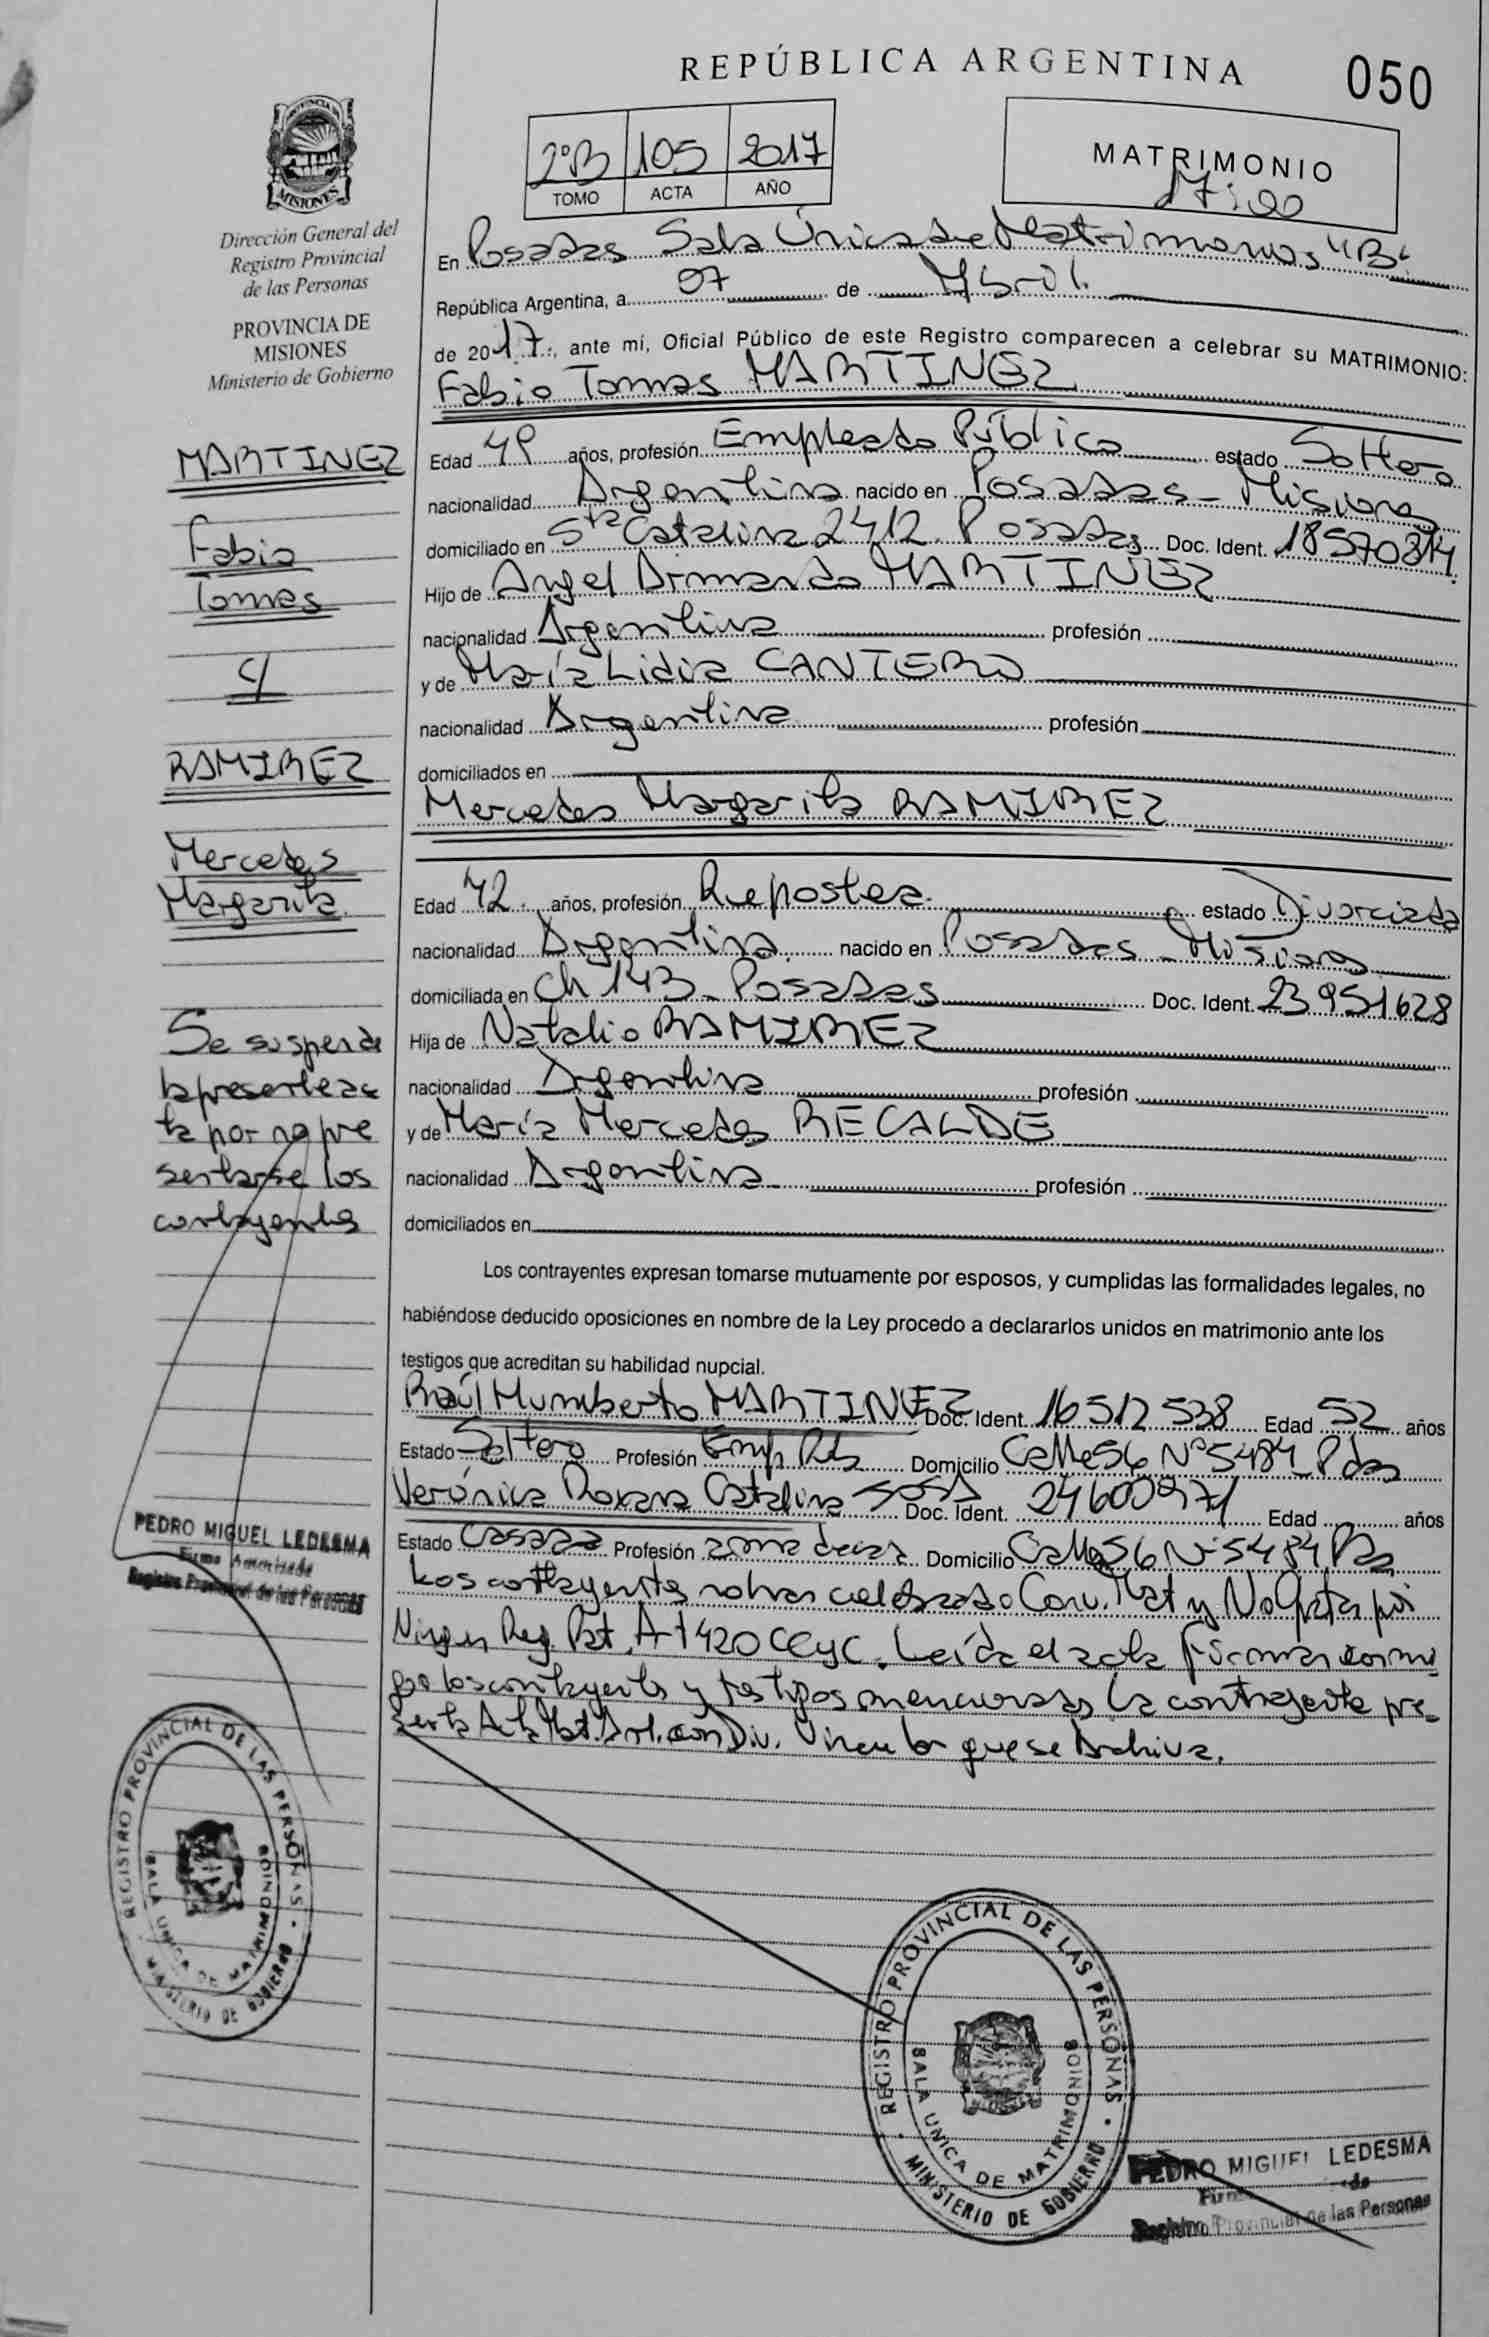 REPÚBLICA ARGENTINA
050
PROVINCIA DE
MISIONES
Dirección General del
Registro Provincial
de las Personas
PROVINCIA DE
MISIONES
Ministerio de Gobierno
2ºB 105 2017
TOMO ACTA AÑO
MATRIMONIO
17:00
En Posadas Sala Única de Matrimonios "B"
República Argentina, a 07 de Abril
de 2017, ante mí, Oficial Público de este Registro comparecen a celebrar su MATRIMONIO:
Fabio Tomas MARTINEZ
Edad 49 años, profesión Empleado Público estado Soltero
nacionalidad Argentina nacido en Posadas - Misiones
domiciliado en Sta Catalina 2412 Posadas Doc. Ident. 18570814
Hijo de Angel Armando MARTINEZ
nacionalidad Argentina profesión
y de María Lidia CANTERO
nacionalidad Argentina profesión
domiciliados en
Mercedes Margarita RAMIREZ
Edad 42 años, profesión Repostera estado Divorciada
nacionalidad Argentina nacido en Posadas - Misiones
domiciliada en Ch 143 - Posadas Doc. Ident. 23951628
Hija de Natalio RAMIREZ
nacionalidad Argentina profesión
y de María Mercedes RECALDE
nacionalidad Argentina profesión
domiciliados en
Los contrayentes expresan tomarse mutuamente por esposos, y cumplidas las formalidades legales, no
habiéndose deducido oposiciones en nombre de la Ley procedo a declararlos unidos en matrimonio ante los
testigos que acreditan su habilidad nupcial.
Raúl Humberto MARTINEZ Doc. Ident. 16512538 Edad 52 años
Estado Soltero Profesión Emp. Domicilio Calle 56 Nº 5484 Pdas
Verónica Roxana Catalina SOSA Doc. Ident. 24600971 Edad años
Estado Casada Profesión ama de casa Domicilio Calle 56 Nº 5484
Los contrayentes no han celebrado Conv. Mat y No Optan por
Ningun Reg. Pat. Art 420 CCyC. Leída el acta firman conmi
go los contrayentes y testigos mencionados. La contrayente pre-
senta Acta Mat. Ant. con Div. Vincular que se Archiva.
MARTINEZ
Fabio
Tomas
c/
RAMIREZ
Mercedes
Margarita
Se suspende
la presente ac
ta por no pre
sentarse los
contrayentes
PEDRO MIGUEL LEDESMA
Firma Autorizada
Registro Provincial de las Personas
REGISTRO PROVINCIAL DE LAS PERSONAS
SALA UNICA DE MATRIMONIOS
MINISTERIO DE GOBIERNO
REGISTRO PROVINCIAL DE LAS PERSONAS
SALA UNICA DE MATRIMONIOS
MINISTERIO DE GOBIERNO
PEDRO MIGUEL LEDESMA
Registro Provincial de las Personas